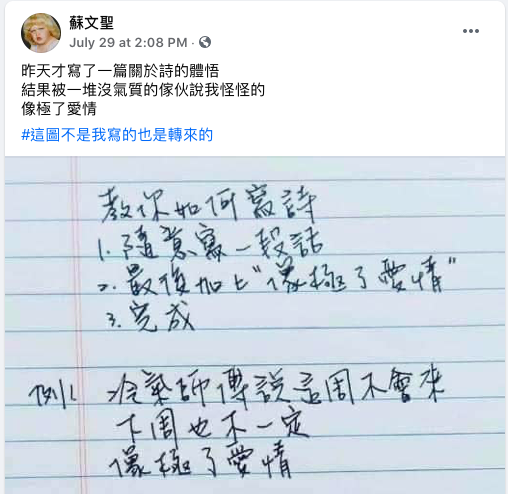 蘇文聖
July 29 at 2:08 PM ·
昨天才寫了一篇關於詩的體悟
結果被一堆沒氣質的傢伙說我怪怪的
像極了愛情
#這圖不是我寫的也是轉來的
教你如何寫詩
1. 隨意寫一段話
2. 最後加上"像極了愛情"
3. 完成
例1. 冷氣師傅說這周不會來
下周也不一定
像極了愛情